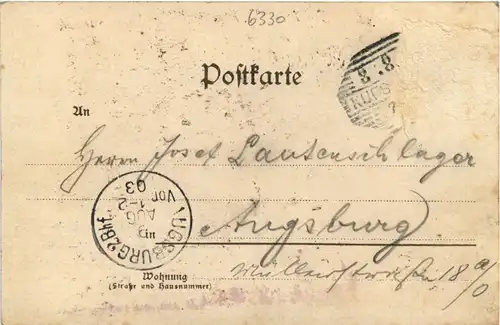 6330
Postkarte
8.8
An
Herrn Josef Lautenschlager
AUGSBURG 2 Bhf.
AUG
1-2
Vor
03
in
Augsburg
Wohnung
(Straße und Hausnummer)
18 a/0